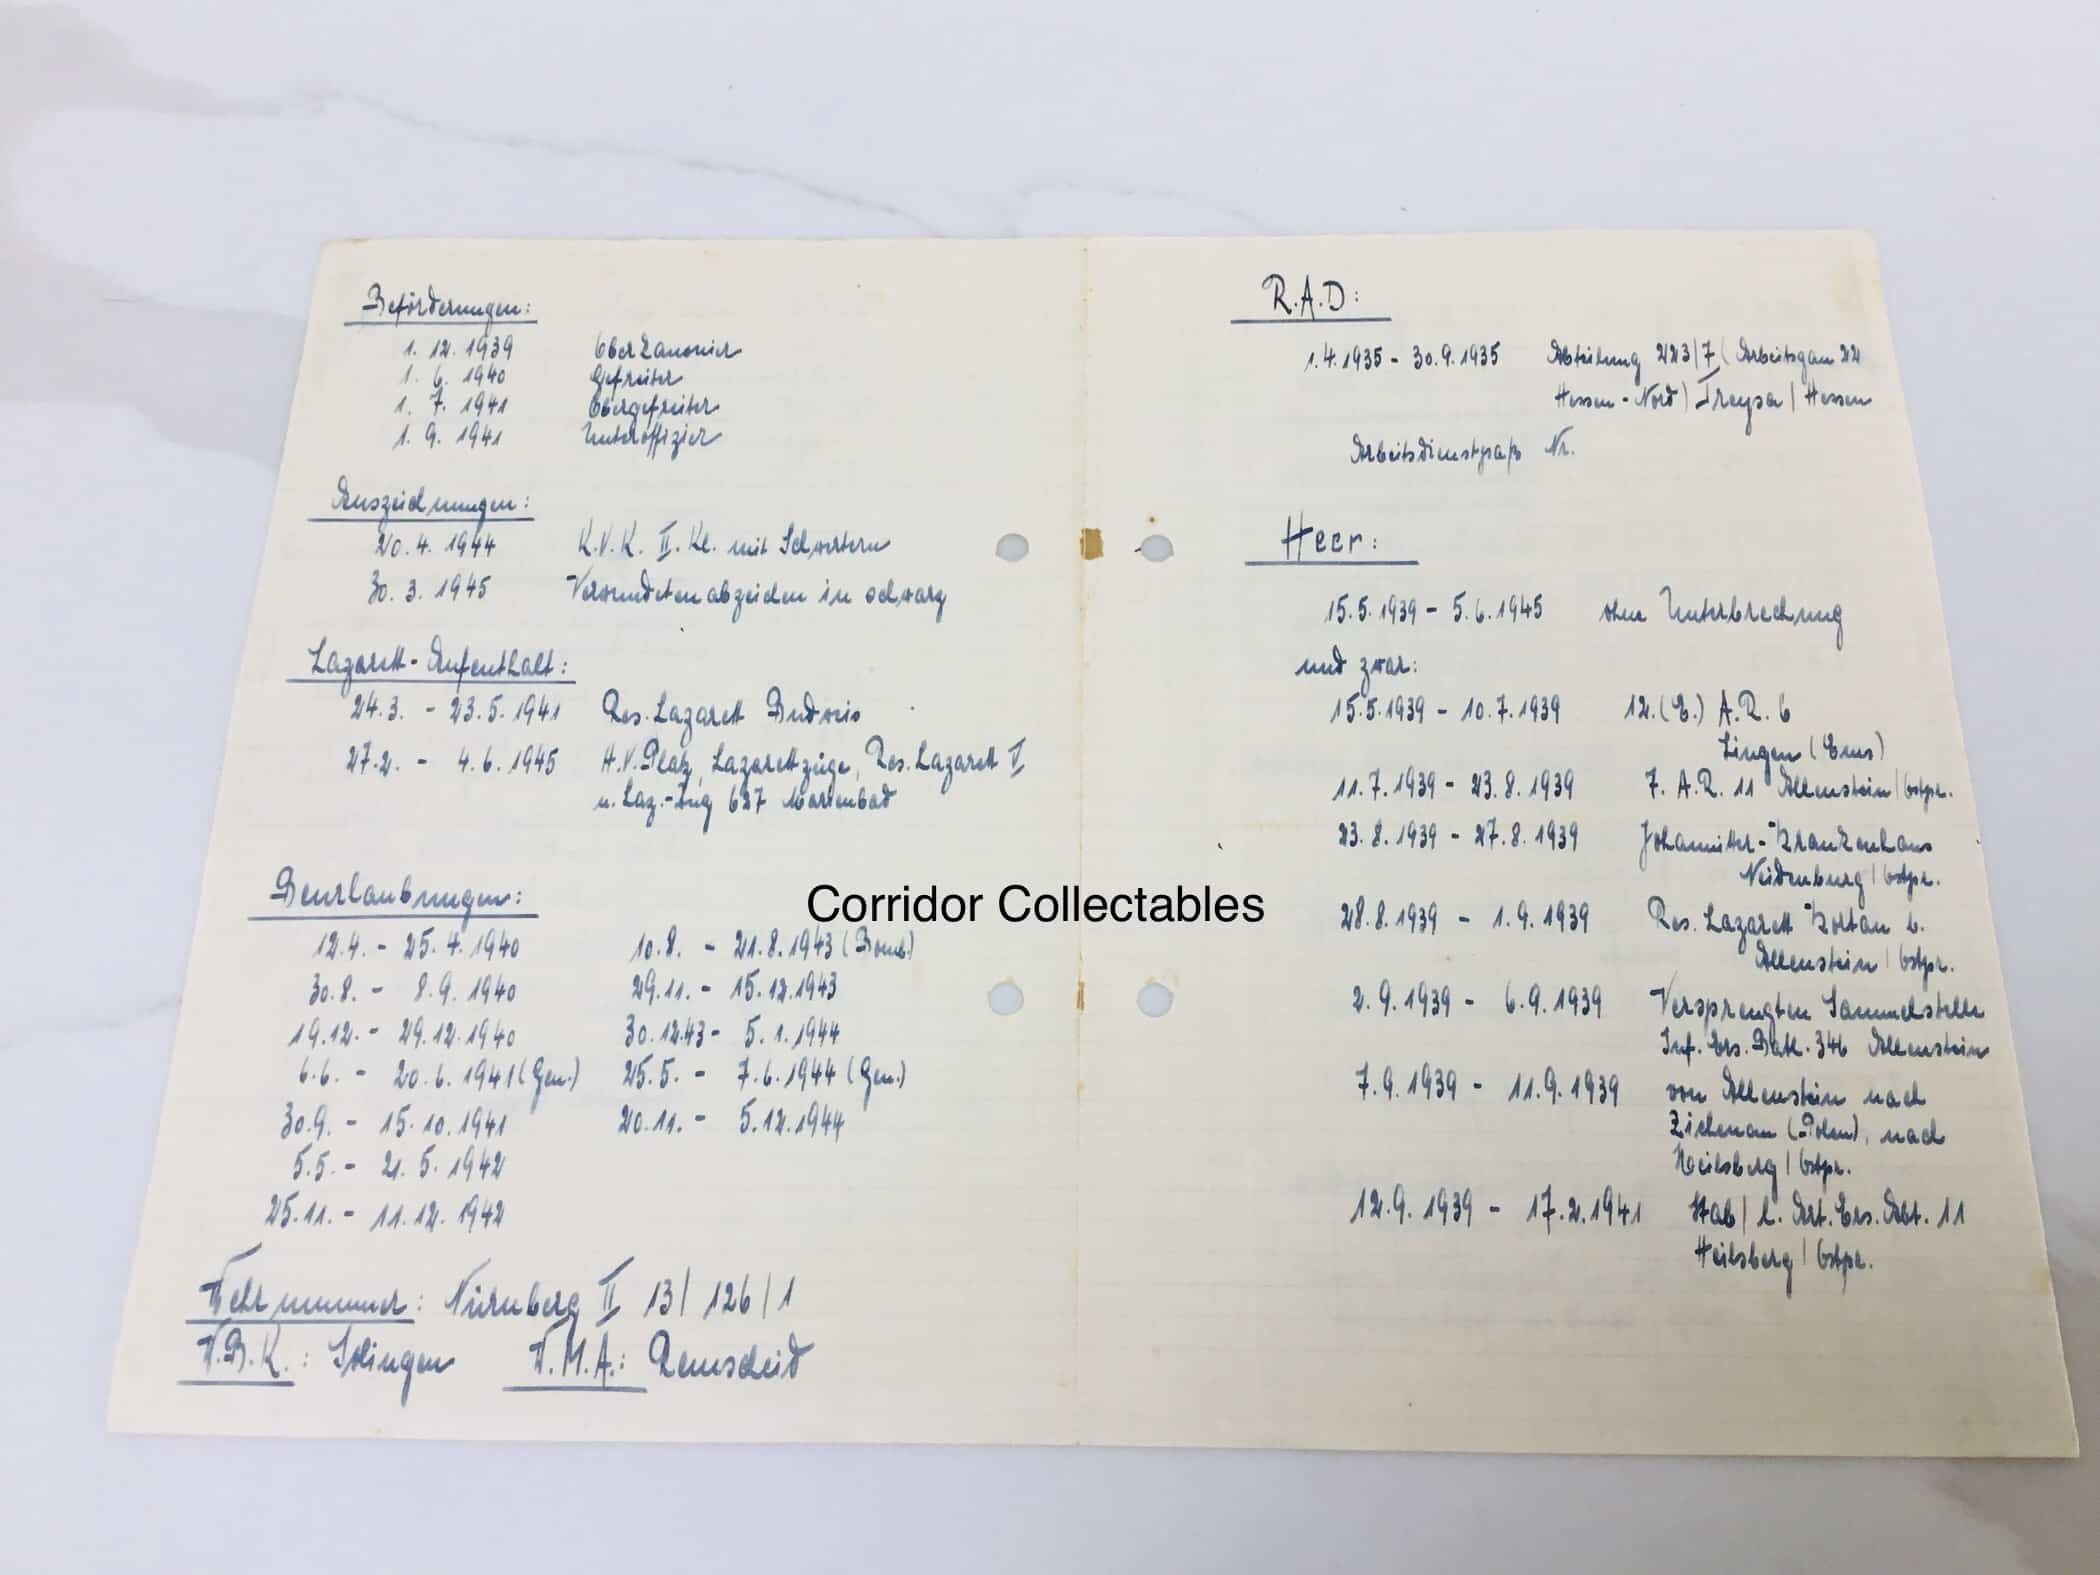 Beförderungen:
1. 12. 1939 Oberkanonier
1. 6. 1940 Gefreiter
1. 7. 1941 Obergefreiter
1. 9. 1941 Unteroffizier
Auszeichnungen:
20. 4. 1944 K.V.K. II. Kl. mit Schwertern
30. 3. 1945 Verwundetenabzeichen in schwarz
Lazarett-Aufenthalt:
24.3. - 23.5.1941 Res. Lazarett Budweis
27.2. - 4.6.1945 H.V.Platz, Lazarettzüge, Res. Lazarett V
u. Laz.-Zug 627 Marienbad
Beurlaubungen:
12.4. - 25.4.1940 10.8. - 21.8.1943 (Bomb.)
30.8. - 8.9.1940 29.11. - 15.12.1943
19.12. - 29.12.1940 30.12.43 - 5.1.1944
6.6. - 20.6.1941 (Gen.) 25.5. - 7.6.1944 (Gen.)
30.9. - 15.10.1941 20.11. - 5.12.1944
5.5. - 21.5.1942
25.11. - 11.12.1942
Wehrnummer: Nürnberg II 13/126/1
W.B.K.: Solingen W.M.A.: Remscheid
R.A.D:
1.4.1935 - 30.9.1935 Abteilung 223/7 (Arbeitsgau 22
Hessen-Nord) Treysa/Hessen
Arbeitsdienstpaß Nr.
Heer:
15.5.1939 - 5.6.1945 ohne Unterbrechung
und zwar:
15.5.1939 - 10.7.1939 12.(E.) A.R. 6
Lingen (Ems)
11.7.1939 - 23.8.1939 7. A.R. 11 Allenstein/Ostpr.
23.8.1939 - 27.8.1939 Johanniter-Krankenhaus
Neidenburg/Ostpr.
28.8.1939 - 1.9.1939 Res. Lazarett Kortau b.
Allenstein/Ostpr.
2.9.1939 - 6.9.1939 Versprengten Sammelstelle
Inf. Ers. Batl. 346 Allenstein
7.9.1939 - 11.9.1939 von Allenstein nach
Zichenau (Polen), nach
Heilsberg/Ostpr.
12.9.1939 - 17.2.1941 Stab/l. Art. Ers. Abt. 11
Heilsberg/Ostpr.
Corridor Collectables